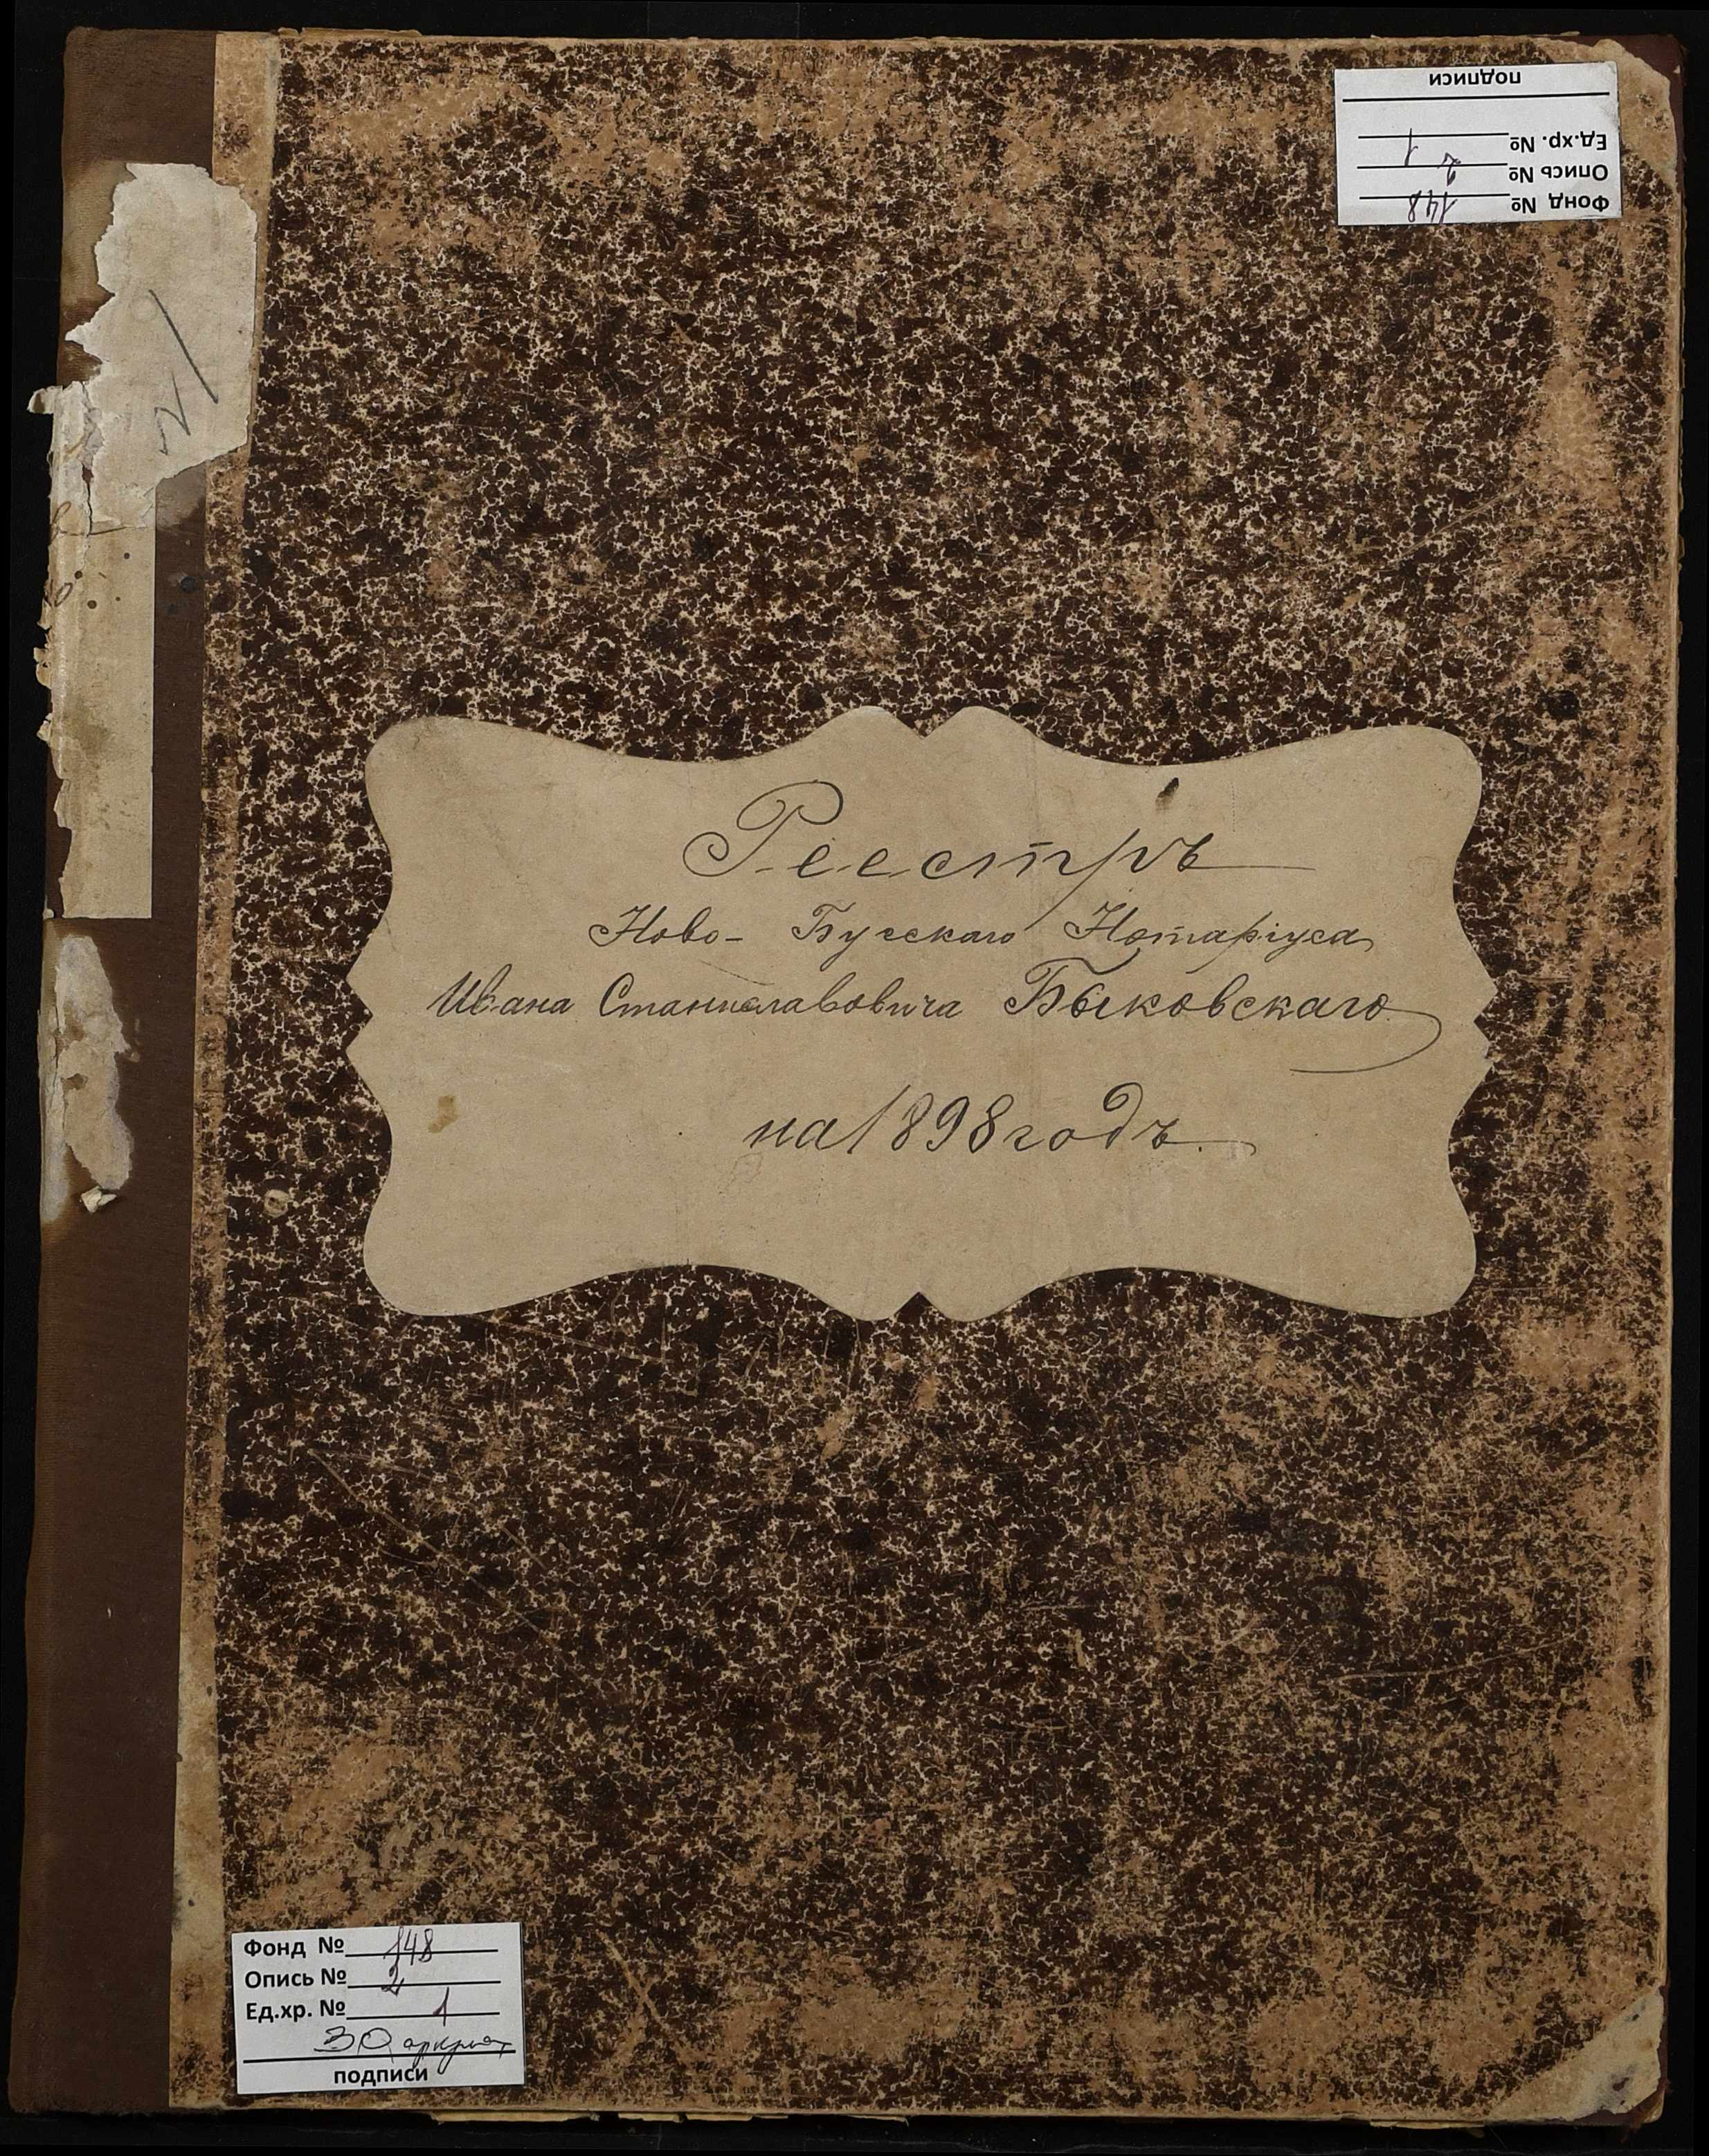 подписи
Ед.хр. № 1
Опись № 2
Фонд № 148
Реестръ
Ново-Бугскаго Нотаріуса
Ивана Станиславовича Быковскаго
на 1898 годъ.
Фонд № 148
Опись № 2
Ед.хр. № 1
подписи